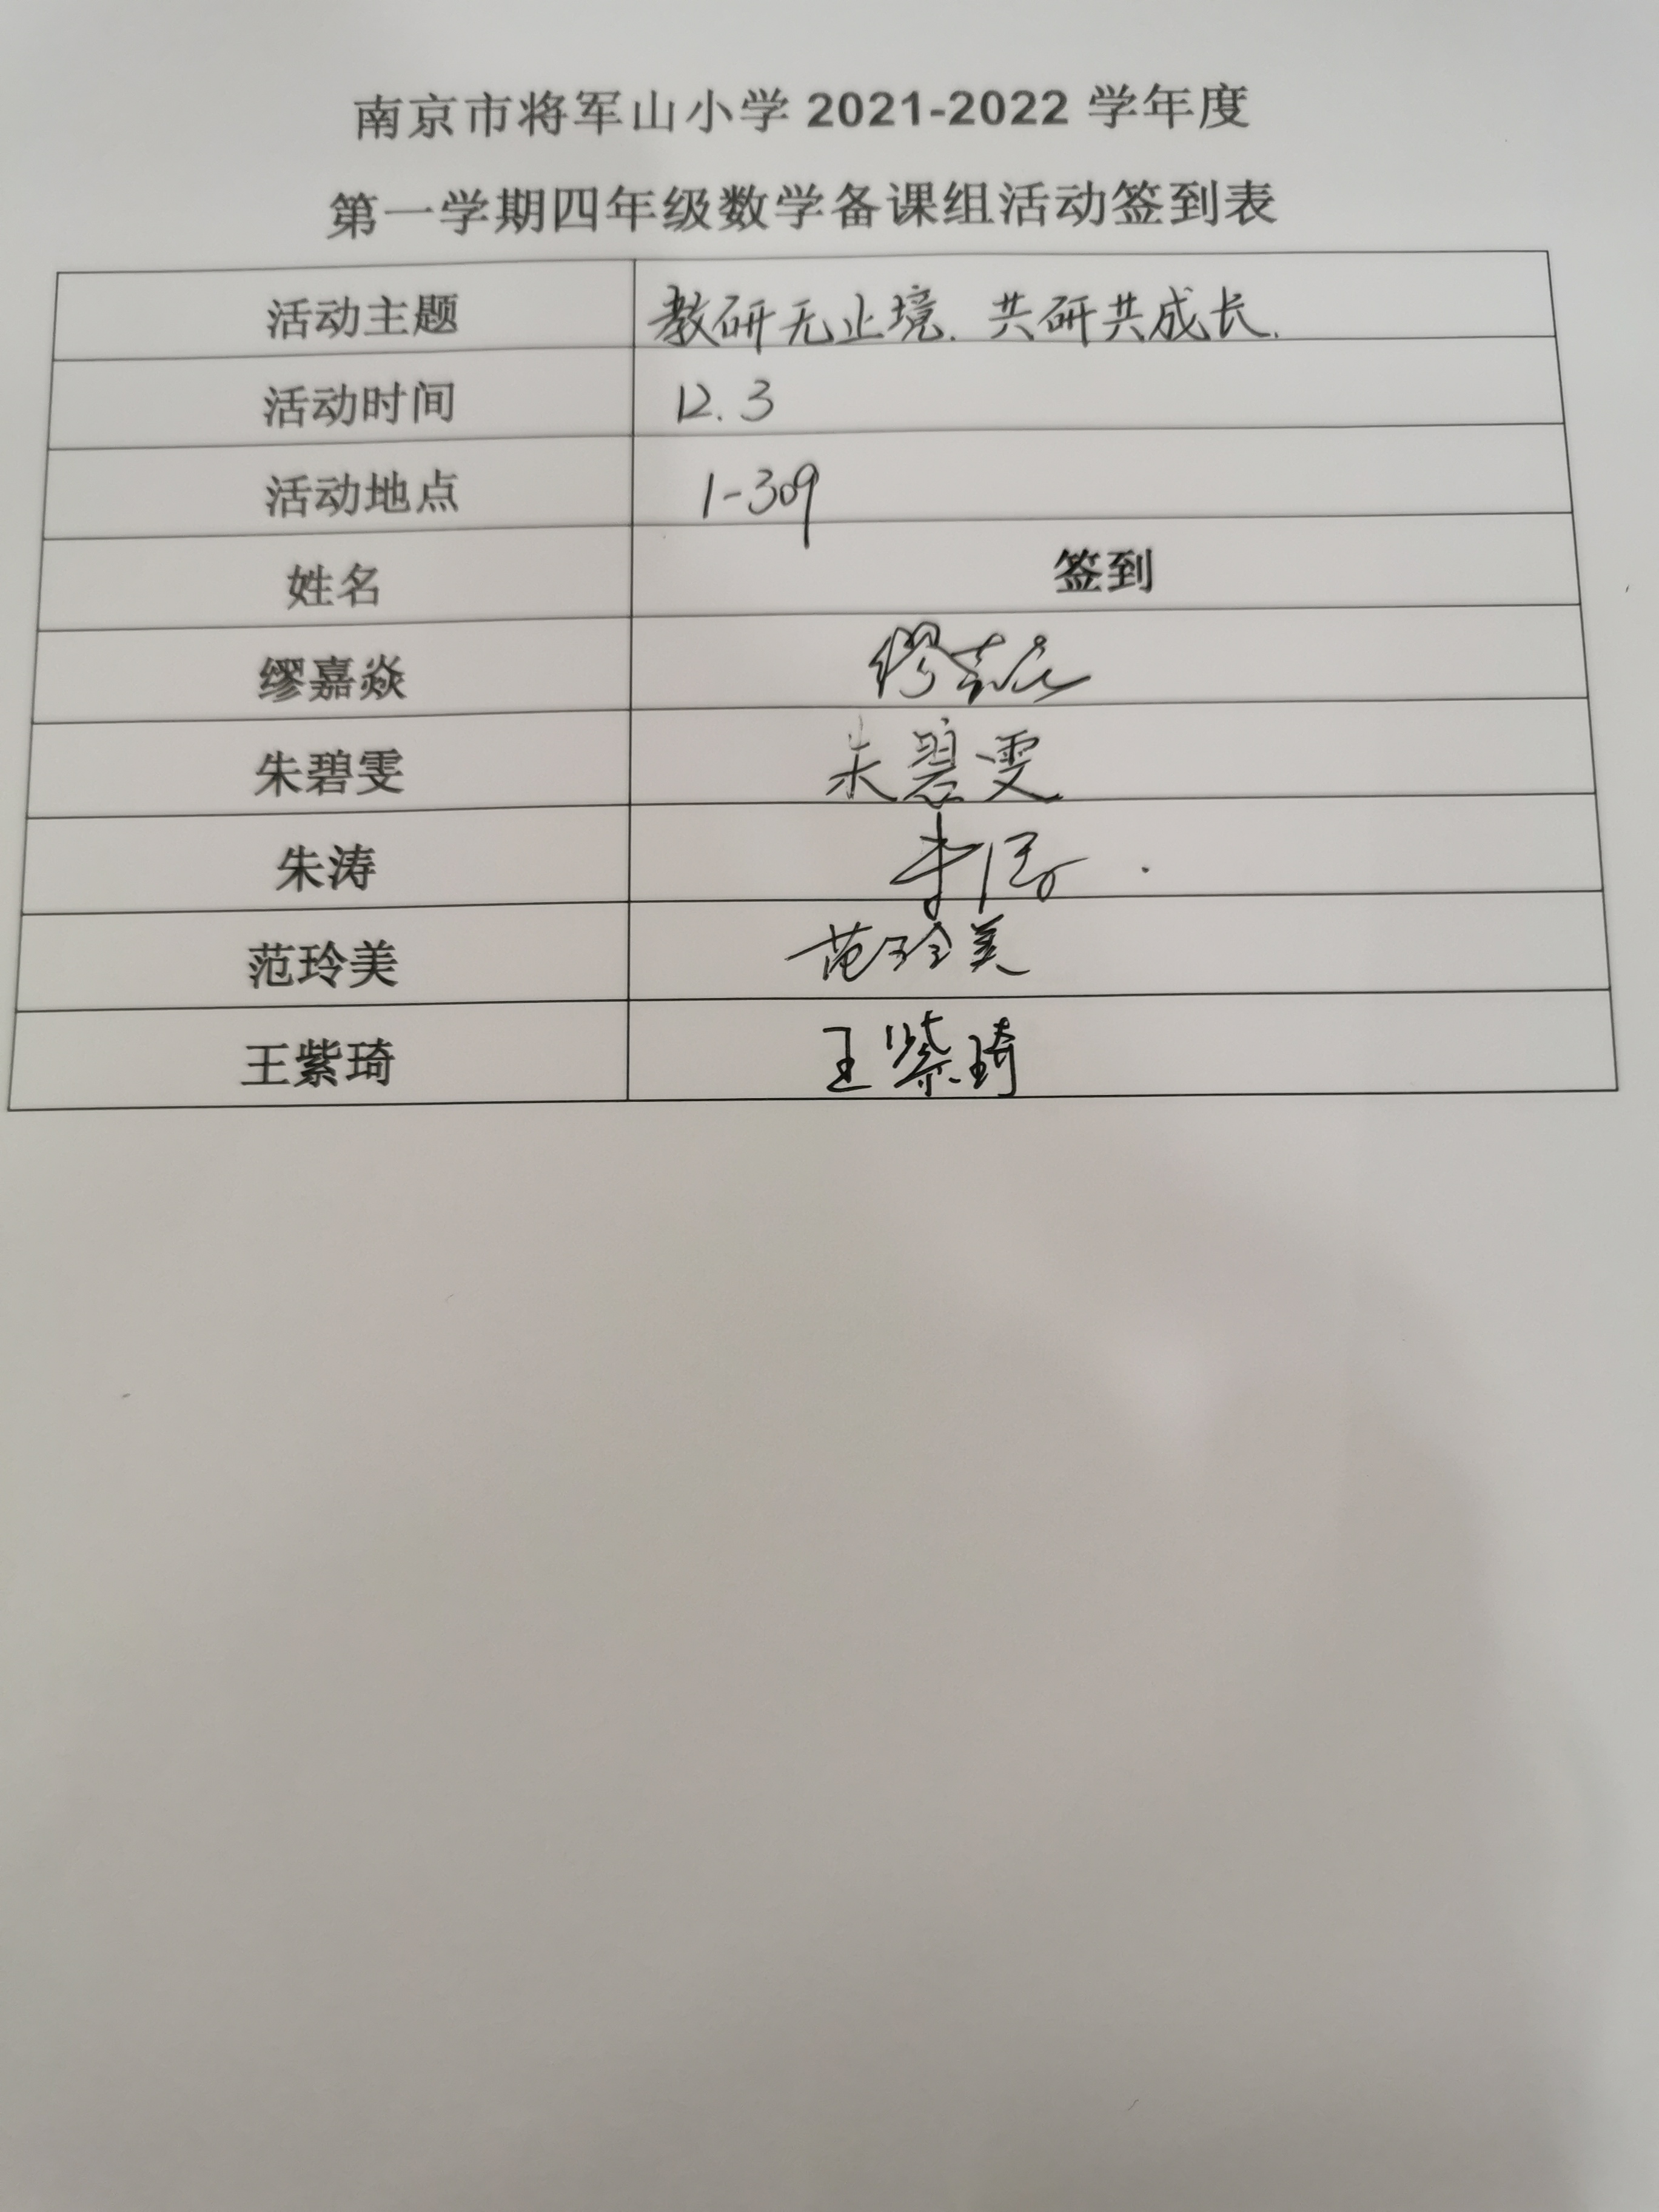 南京市将军山小学 2021-2022 学年度
第一学期四年级数学备课组活动签到表
活动主题 教研无止境. 共研共成长.
活动时间 12.3
活动地点 1-309
姓名 签到
缪嘉焱 缪嘉焱
朱碧雯 朱碧雯
朱涛 朱涛
范玲美 范玲美
王紫琦 王紫琦